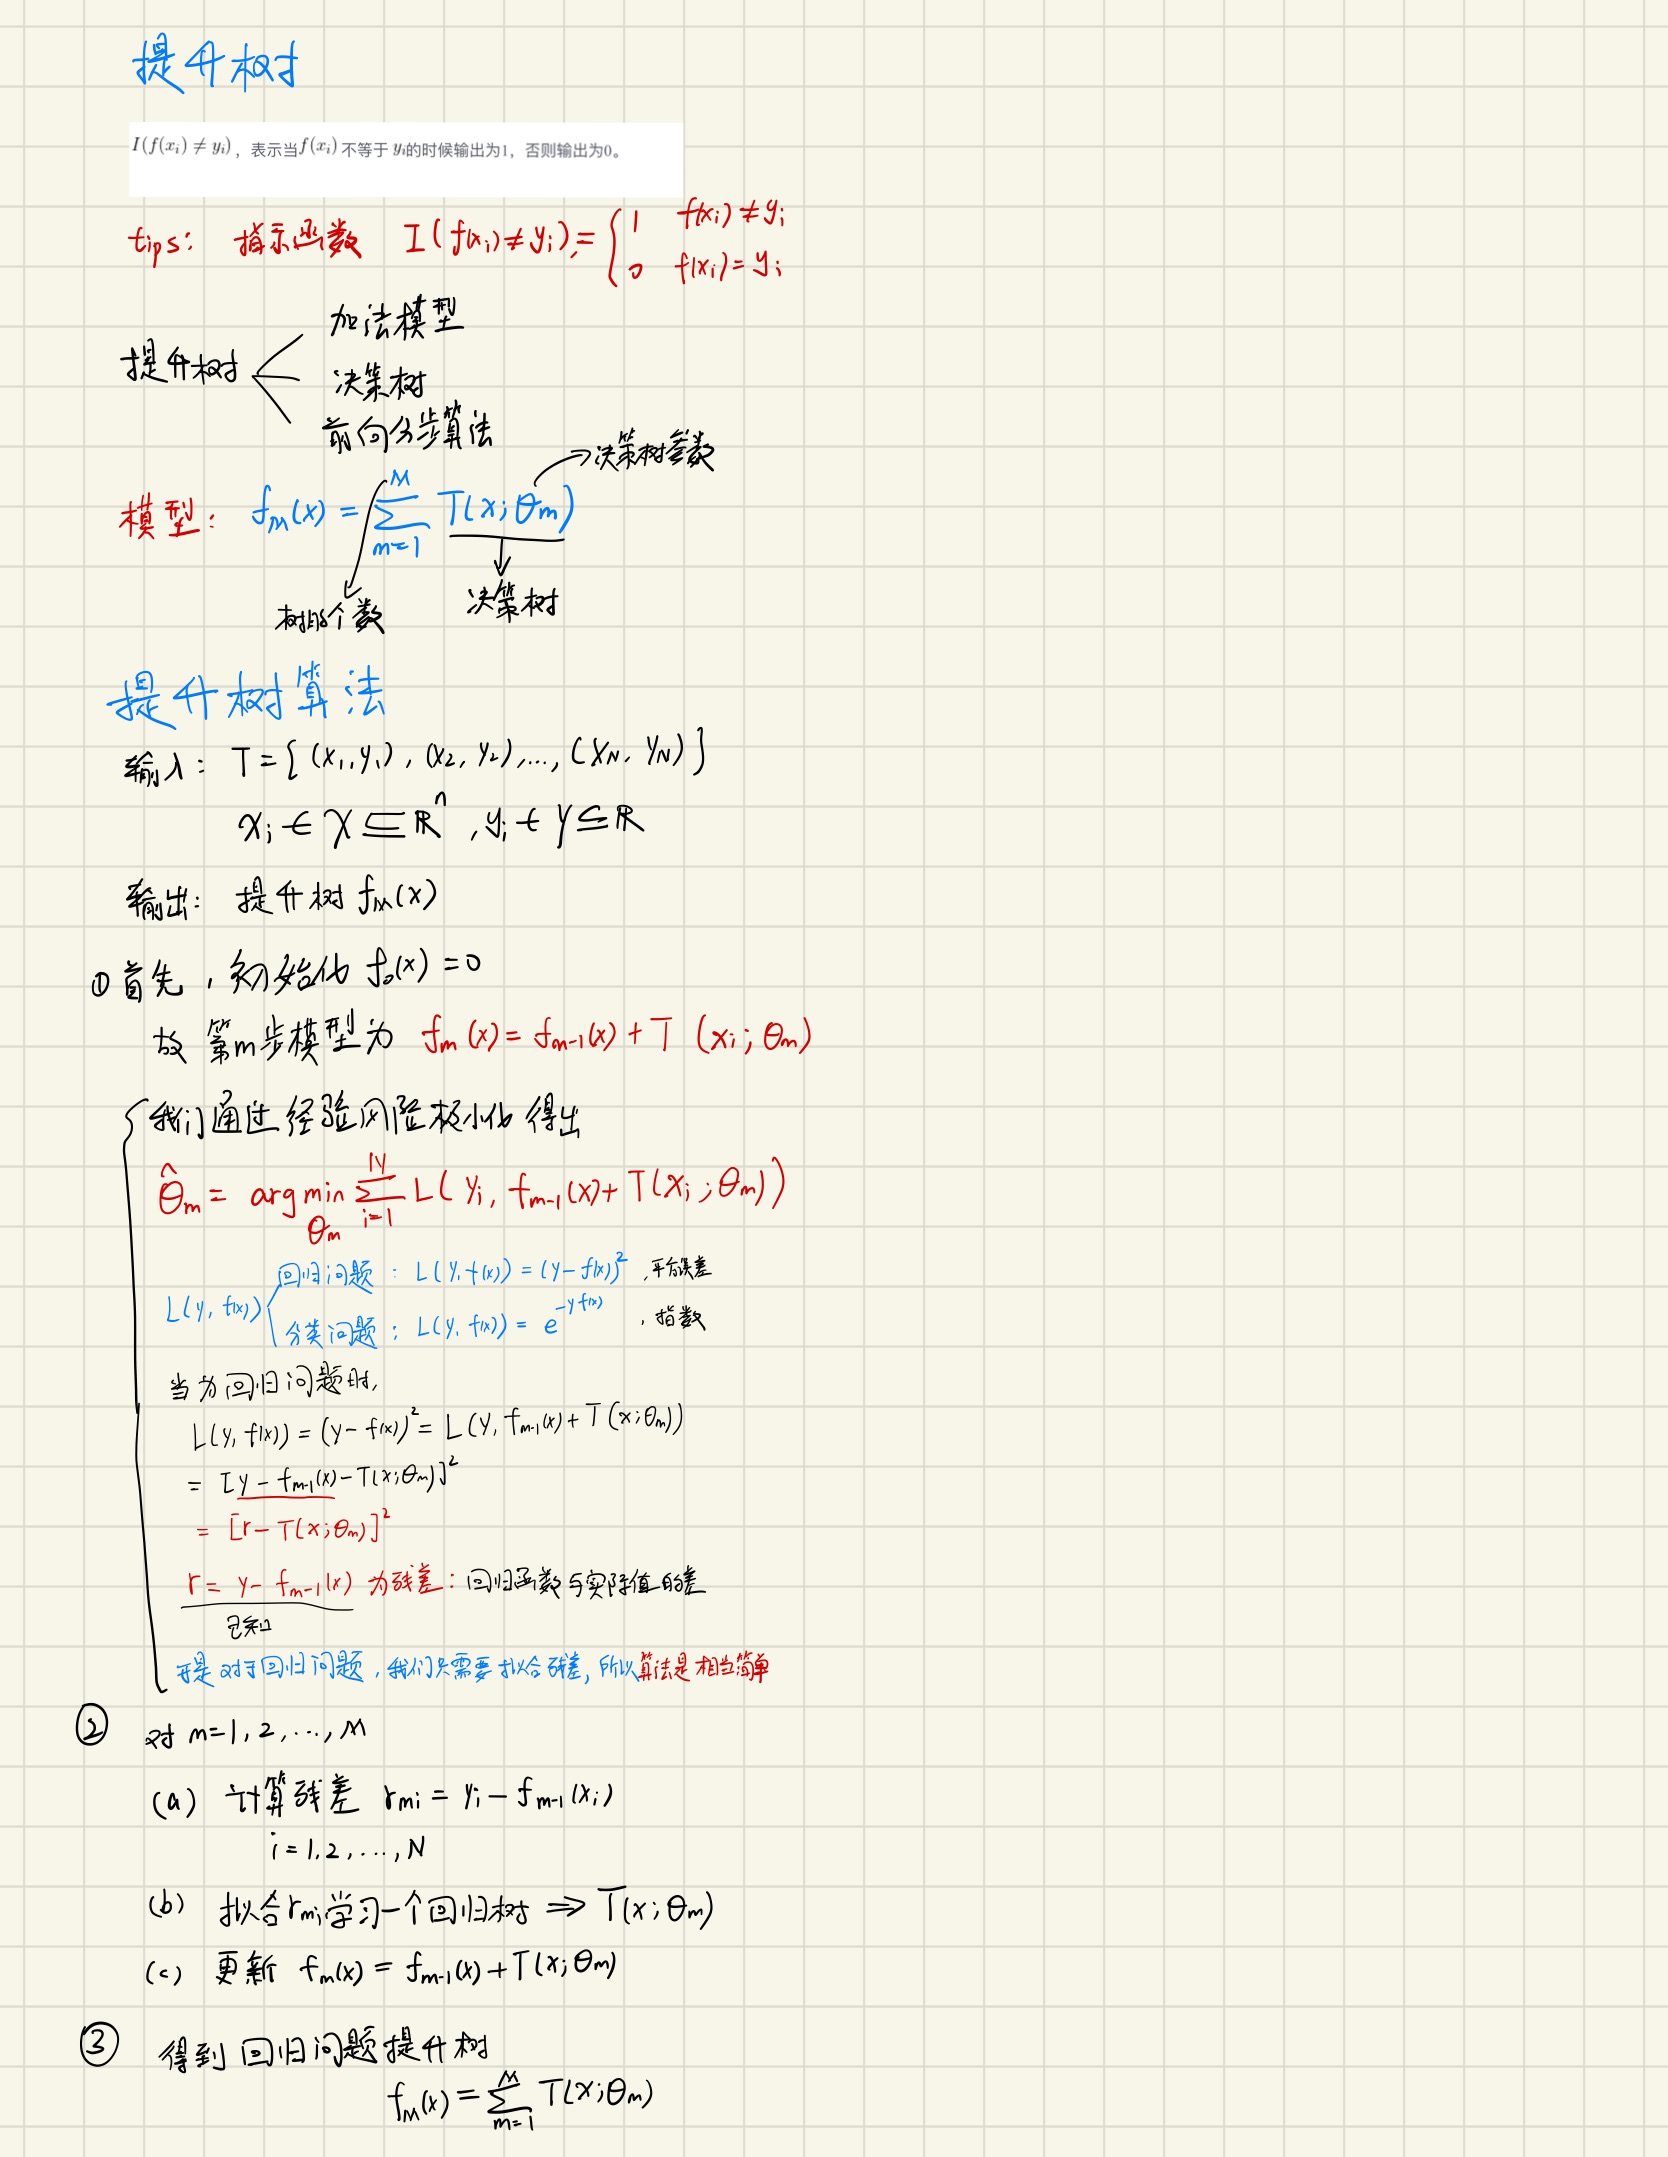 提升树
I(f(x_i) ≠ y_i)，表示当f(x_i)不等于 y_i的时候输出为1，否则输出为0。
tips： 指示函数 I(f(x_i)≠y_i),= { 1 f(x_i)≠y_i
0 f(x_i)=y_i
加法模型
提升树
决策树
前向分步算法
决策树参数
模型： f_M(x) = ∑_{m=1}^{M} T(x;θ_m)
树的个数 决策树
提升树算法
输入： T={(x_1,y_1),(x_2,y_2),...,(x_N,y_N)}
x_i∈χ⊆R^n ,y_i∈y⊆R
输出： 提升树 f_M(x)
①首先，初始化 f_0(x)=0
故 第m步模型为 f_m(x)=f_{m-1}(x)+T(x_i;θ_m)
我们通过经验风险极小化得出
θ̂_m = arg min_{θ_m} ∑_{i=1}^{N} L(y_i, f_{m-1}(x)+T(x_i;θ_m))
回归问题： L(y,f(x))=(y-f(x))^2 ,平方误差
L(y,f(x))
分类问题： L(y,f(x))=e^{-yf(x)} ,指数
当为回归问题时,
L(y,f(x))=(y-f(x))^2=L(y,f_{m-1}(x)+T(x;θ_m))
= [y-f_{m-1}(x)-T(x;θ_m)]^2
= [r-T(x;θ_m)]^2
r=y-f_{m-1}(x) 为残差：回归函数与实际值的差
已知
于是对于回归问题，我们只需要拟合残差，所以算法是相当简单
② 对 m=1,2,...,M
(a) 计算残差 r_{mi}=y_i-f_{m-1}(x_i)
i=1,2,...,N
(b) 拟合r_{mi}学习一个回归树 ⇒ T(x;θ_m)
(c) 更新 f_m(x)=f_{m-1}(x)+T(x;θ_m)
③ 得到回归问题提升树
f_M(x)=∑_{m=1}^{M} T(x;θ_m)